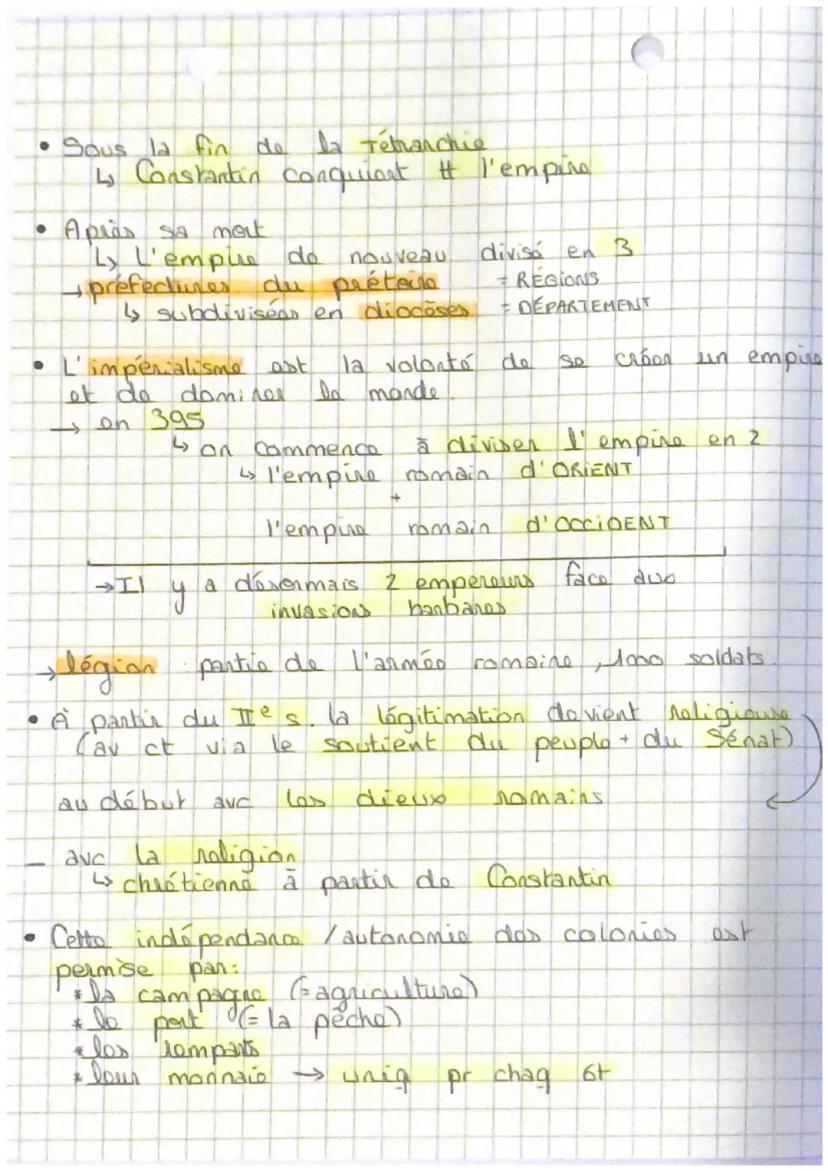 • Sous la fin de la Tétrarchie
↳ Constantin conquiert # l'empire
• Après sa mort
↳ L'empire de nouveau divisé en 3
→ préfectures du prétoire = RÉGIONS
↳ subdivisées en diocèses = DÉPARTEMENT
• L'impérialisme est la volonté de se créer un empire
et de dominer le monde.
→ en 395
↳ on commence à diviser l'empire en 2
↳ l'empire romain d'ORIENT
+
l'empire romain d'OCCIDENT
→ Il y a désormais 2 empereurs face aux
invasions barbares
→ légion : partie de l'armée romaine, 1000 soldats.
• À partir du IIe s. la légitimation devient religieuse
(av ct via le soutient du peuple + du Sénat)
au début avc les dieux romains
– avc la religion
↳ chrétienne à partir de Constantin
• Cette indépendance / autonomie des colonies est
permise par:
* la campagne (= agriculture)
* le port (= la pêche)
* les remparts
* leur monnaie → uniq pr chaq